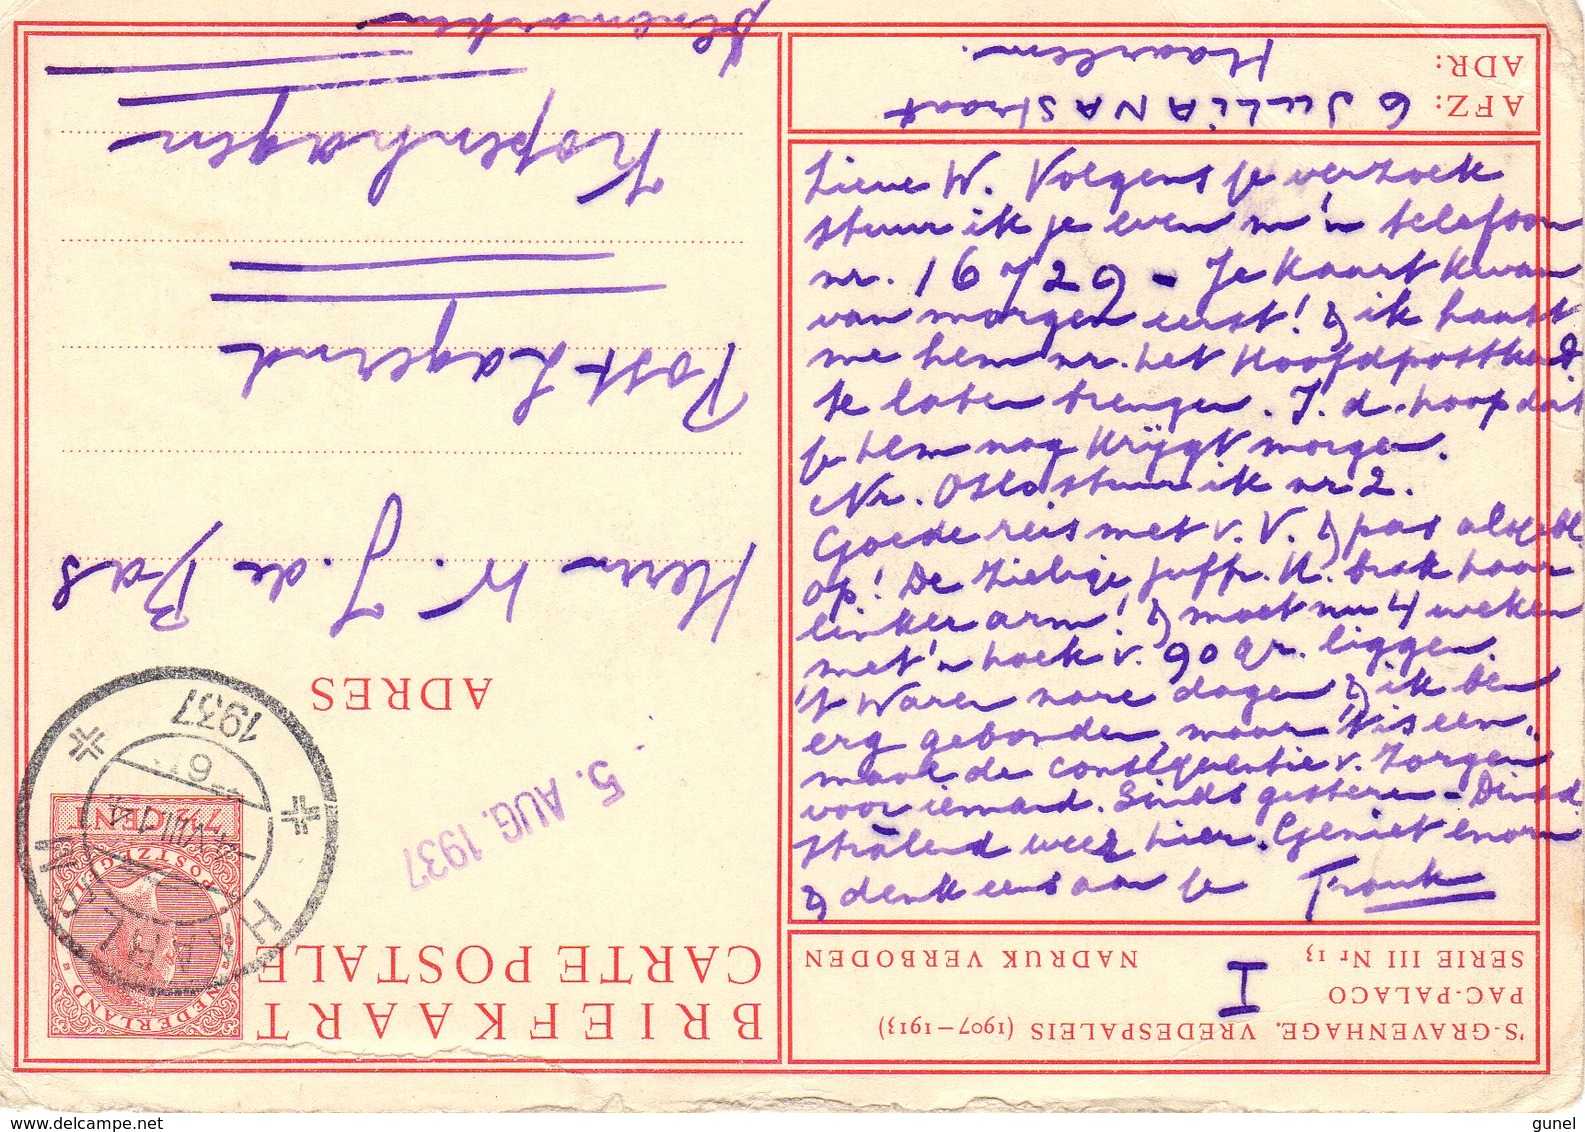 BRIEFKAART
CARTE POSTALE
NEDERLAND
POSTZEGEL
7½ CENT
HAARLEM
1937
5. AUG. 1937
ADRES
Herrn W. J. de Bas
Post Lagernd
Kopenhagen
Denemarken
'S-GRAVENHAGE. VREDESPALEIS (1907-1913)
PAC-PALACO
SERIE III Nr 13 NADRUK VERBODEN
I
AFZ: 6 JULIANAstraat
ADR: Haarlem.
Lieve W. Volgens je verzoek
stuur ik je even m'n telefoon
nr. 16729 - Je kaart kwam
van morgen eerst! & ik haast
me hem nr. het Hoofdpostkant.
te laten brengen. I. d. hoop dat
je hem nog krijgt morgen.
Nr. Oslo stuur ik nr 2.
Goede reis met v. V. & pas alsjebl.
op! De zielige juffr. K. brak haar
linker arm! & moet nu 4 weken
met 'n hoek v. 90 gr. liggen.
't Waren nare dagen & ik ben
erg gebonden, maar 't is een-
maal de consequentie v. zorgen
voor iemand. Sinds gisteren - Dinsd.
stralend weer hier. Geniet enorm
& denk eens aan je Trouk
delcampe.net
gunel